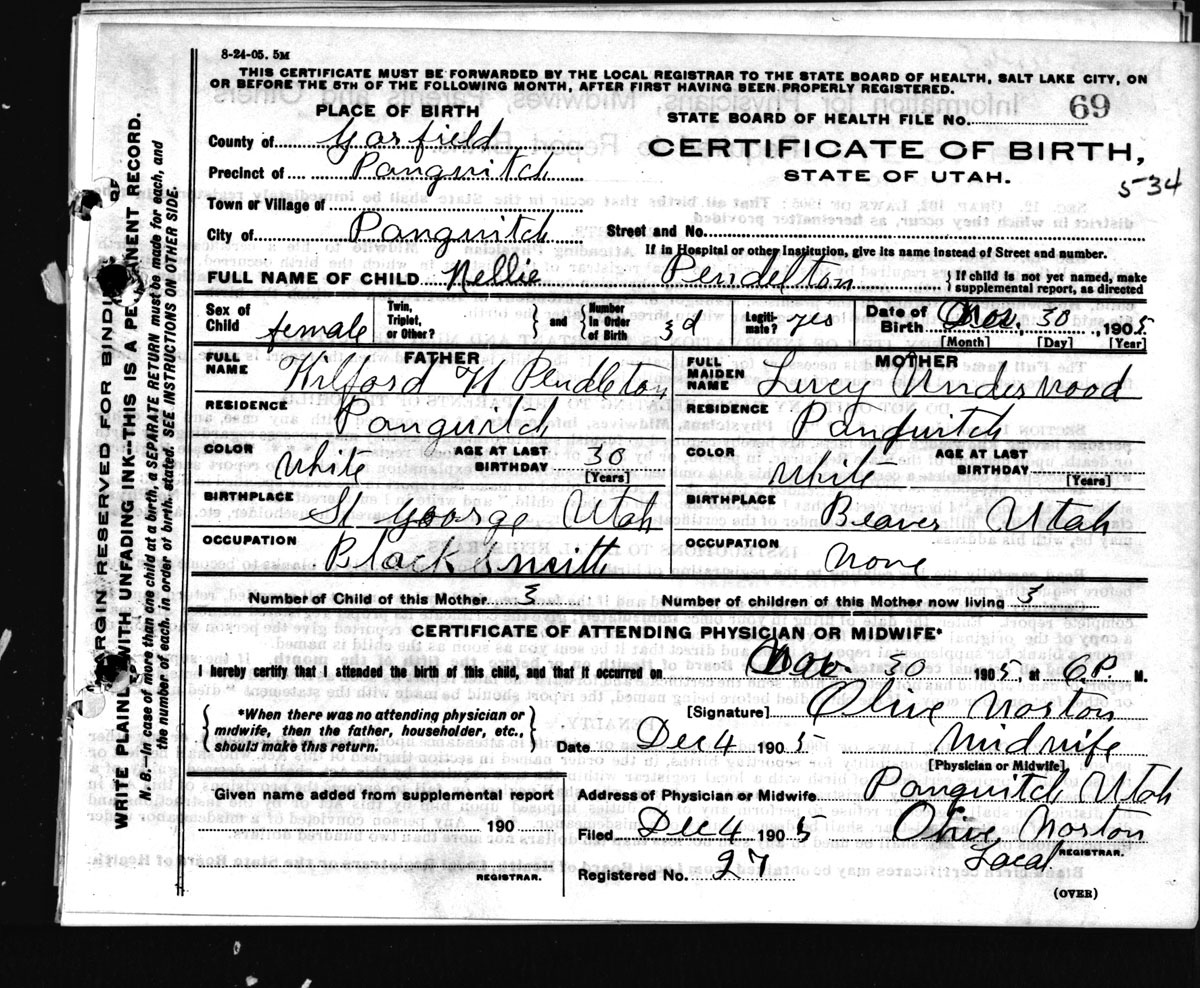 8-24-05. 5M
THIS CERTIFICATE MUST BE FORWARDED BY THE LOCAL REGISTRAR TO THE STATE BOARD OF HEALTH, SALT LAKE CITY, ON
OR BEFORE THE 5TH OF THE FOLLOWING MONTH, AFTER FIRST HAVING BEEN PROPERLY REGISTERED.
PLACE OF BIRTH
STATE BOARD OF HEALTH FILE No. 69
County of Garfield
CERTIFICATE OF BIRTH,
STATE OF UTAH.
534
Precinct of Panguitch
Town or Village of
City of Panguitch
Street and No.
If in Hospital or other Institution, give its name instead of Street and number.
FULL NAME OF CHILD Nellie Pendelton
{If child is not yet named, make supplemental report, as directed
Sex of Child female
Twin, Triplet, or Other?
} and {
Number in Order of Birth 3d
Legitimate? yes
Date of Birth Nov. 30, 1905
[Month] [Day] [Year]
FATHER
FULL NAME Wilford W Pendleton
RESIDENCE Panguitch
COLOR White
AGE AT LAST BIRTHDAY 30
[Years]
BIRTHPLACE St George Utah
OCCUPATION Blacksmith
MOTHER
FULL MAIDEN NAME Lucey Underwood
RESIDENCE Panguitch
COLOR White
AGE AT LAST BIRTHDAY
[Years]
BIRTHPLACE Beaver Utah
OCCUPATION None
Number of Child of this Mother 3
Number of children of this Mother now living 3
CERTIFICATE OF ATTENDING PHYSICIAN OR MIDWIFE*
I hereby certify that I attended the birth of this child, and that it occurred on Nov. 30 1905, at 6 P. M.
{*When there was no attending physician or
midwife, then the father, householder, etc.,
should make this return.}
[Signature] Olive Norton
Date Dec 4 1905 Midwife
[Physician or Midwife]
Given name added from supplemental report
190
REGISTRAR.
Address of Physician or Midwife Panguitch Utah
Filed Dec 4 1905 Olive Norton
Local REGISTRAR.
Registered No. 27
(OVER)
MARGIN RESERVED FOR BINDING
WRITE PLAINLY WITH UNFADING INK—THIS IS A PERMANENT RECORD.
N. B.—In case of more than one child at a birth a SEPARATE RETURN must be made for each, and
the number of each, in order of birth, stated. SEE INSTRUCTIONS ON OTHER SIDE.